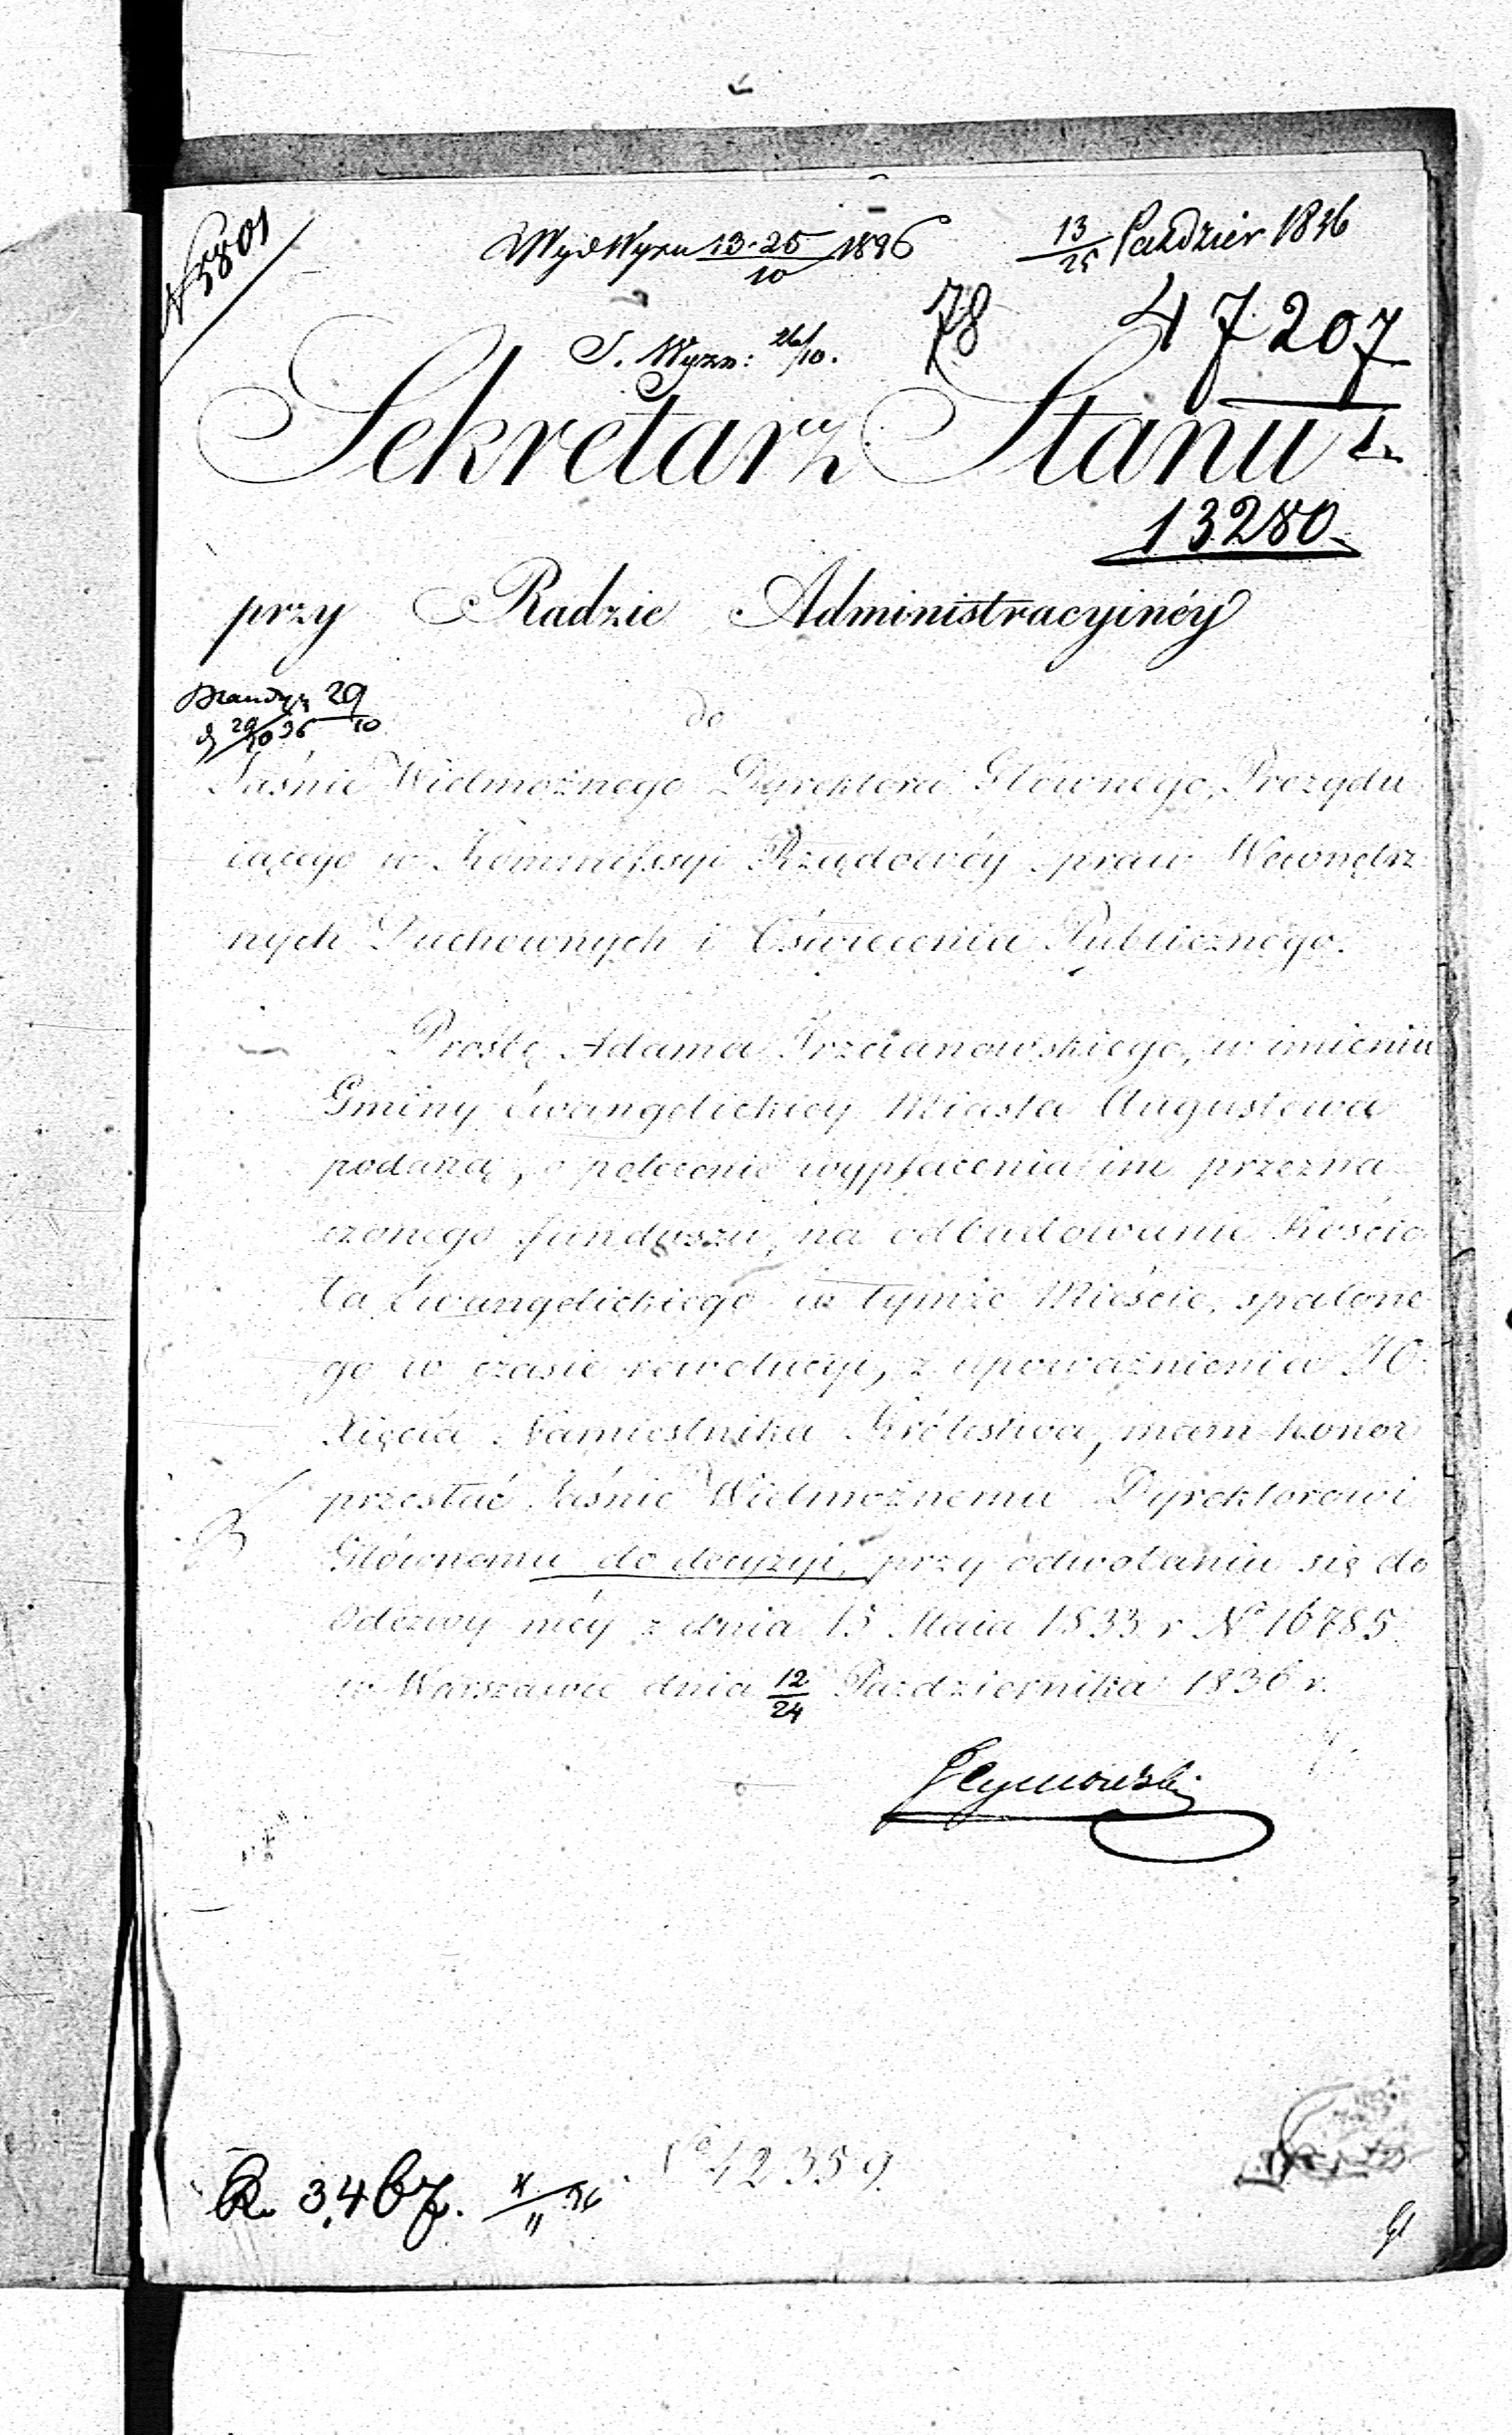 N 5801
Wyd Wyzn 13-25/10 1836
13/25 Paździer 1836
78
47207
S. Wyzn: 26/10.
Sekretarz Stanu
1.
13280
przy Radzie Administracyinéy
29/10
29/10 36
do
Jaśnie Wielmożnego Dyrektora Głównego, Prezydu
iącego w Kommissyi Rządowéy spraw Wewnętrz
nych Duchownych i Oświecenia Publicznego.
Prośbę Adama Trzcianowskiego, w imieniu
Gminy Ewangelickiey Miasta Augustowa
podaną, o polecenie wypłacenia im przezna
czonego funduszu, na odbudowanie Kościo
ła Ewangelickiego w tymże Mieście, spalone
go w czasie rewolucyi, z upoważnienia JO.
Xięcia Namiestnika Królestwa, mam honor
przesłać Jaśnie Wielmożnemu Dyrektorowi
Głównemu do decyzyi, przy odwołaniu się do
Odezwy méy z dnia 15 Maia 1833 r. Nº 16785.
w Warszawie dnia 12/24 Października 1836 r.
R. 3467. 4/11 36
Nº 42359.